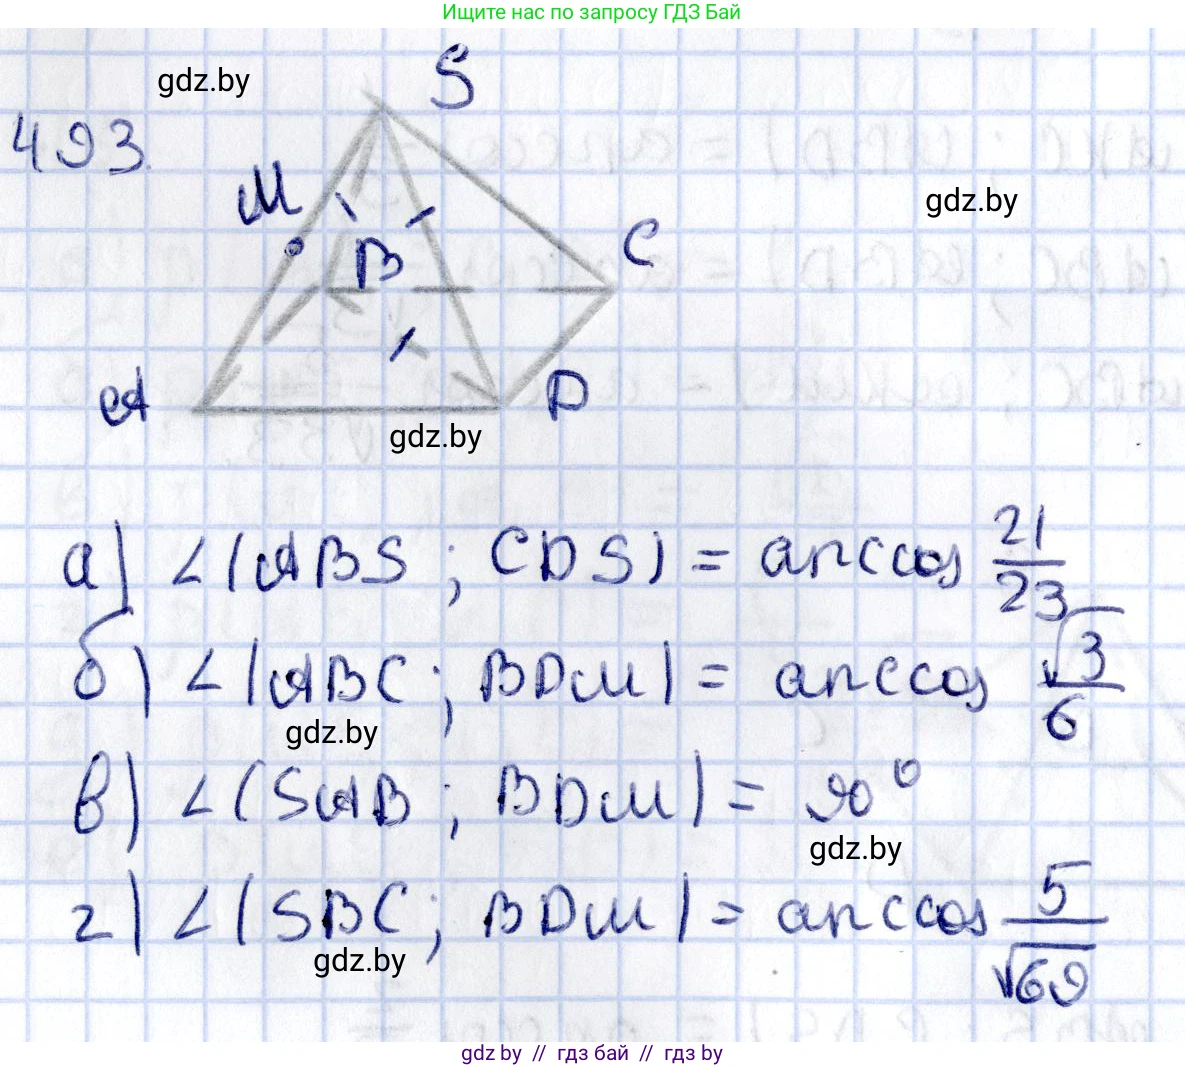 Ищите нас по запросу ГДЗ Бай
gdz.by
S
493.
M
gdz.by
B
C
A
D
gdz.by
а) ∠(ABS; CDS) = arccos 21/23
б) ∠(ABC; BDM) = arccos √3/6
gdz.by
в) ∠(SAB; BDM) = 90°
gdz.by
г) ∠(SBC; BDM) = arccos 5/√69
gdz.by
gdz by // гдз бай // гдз by